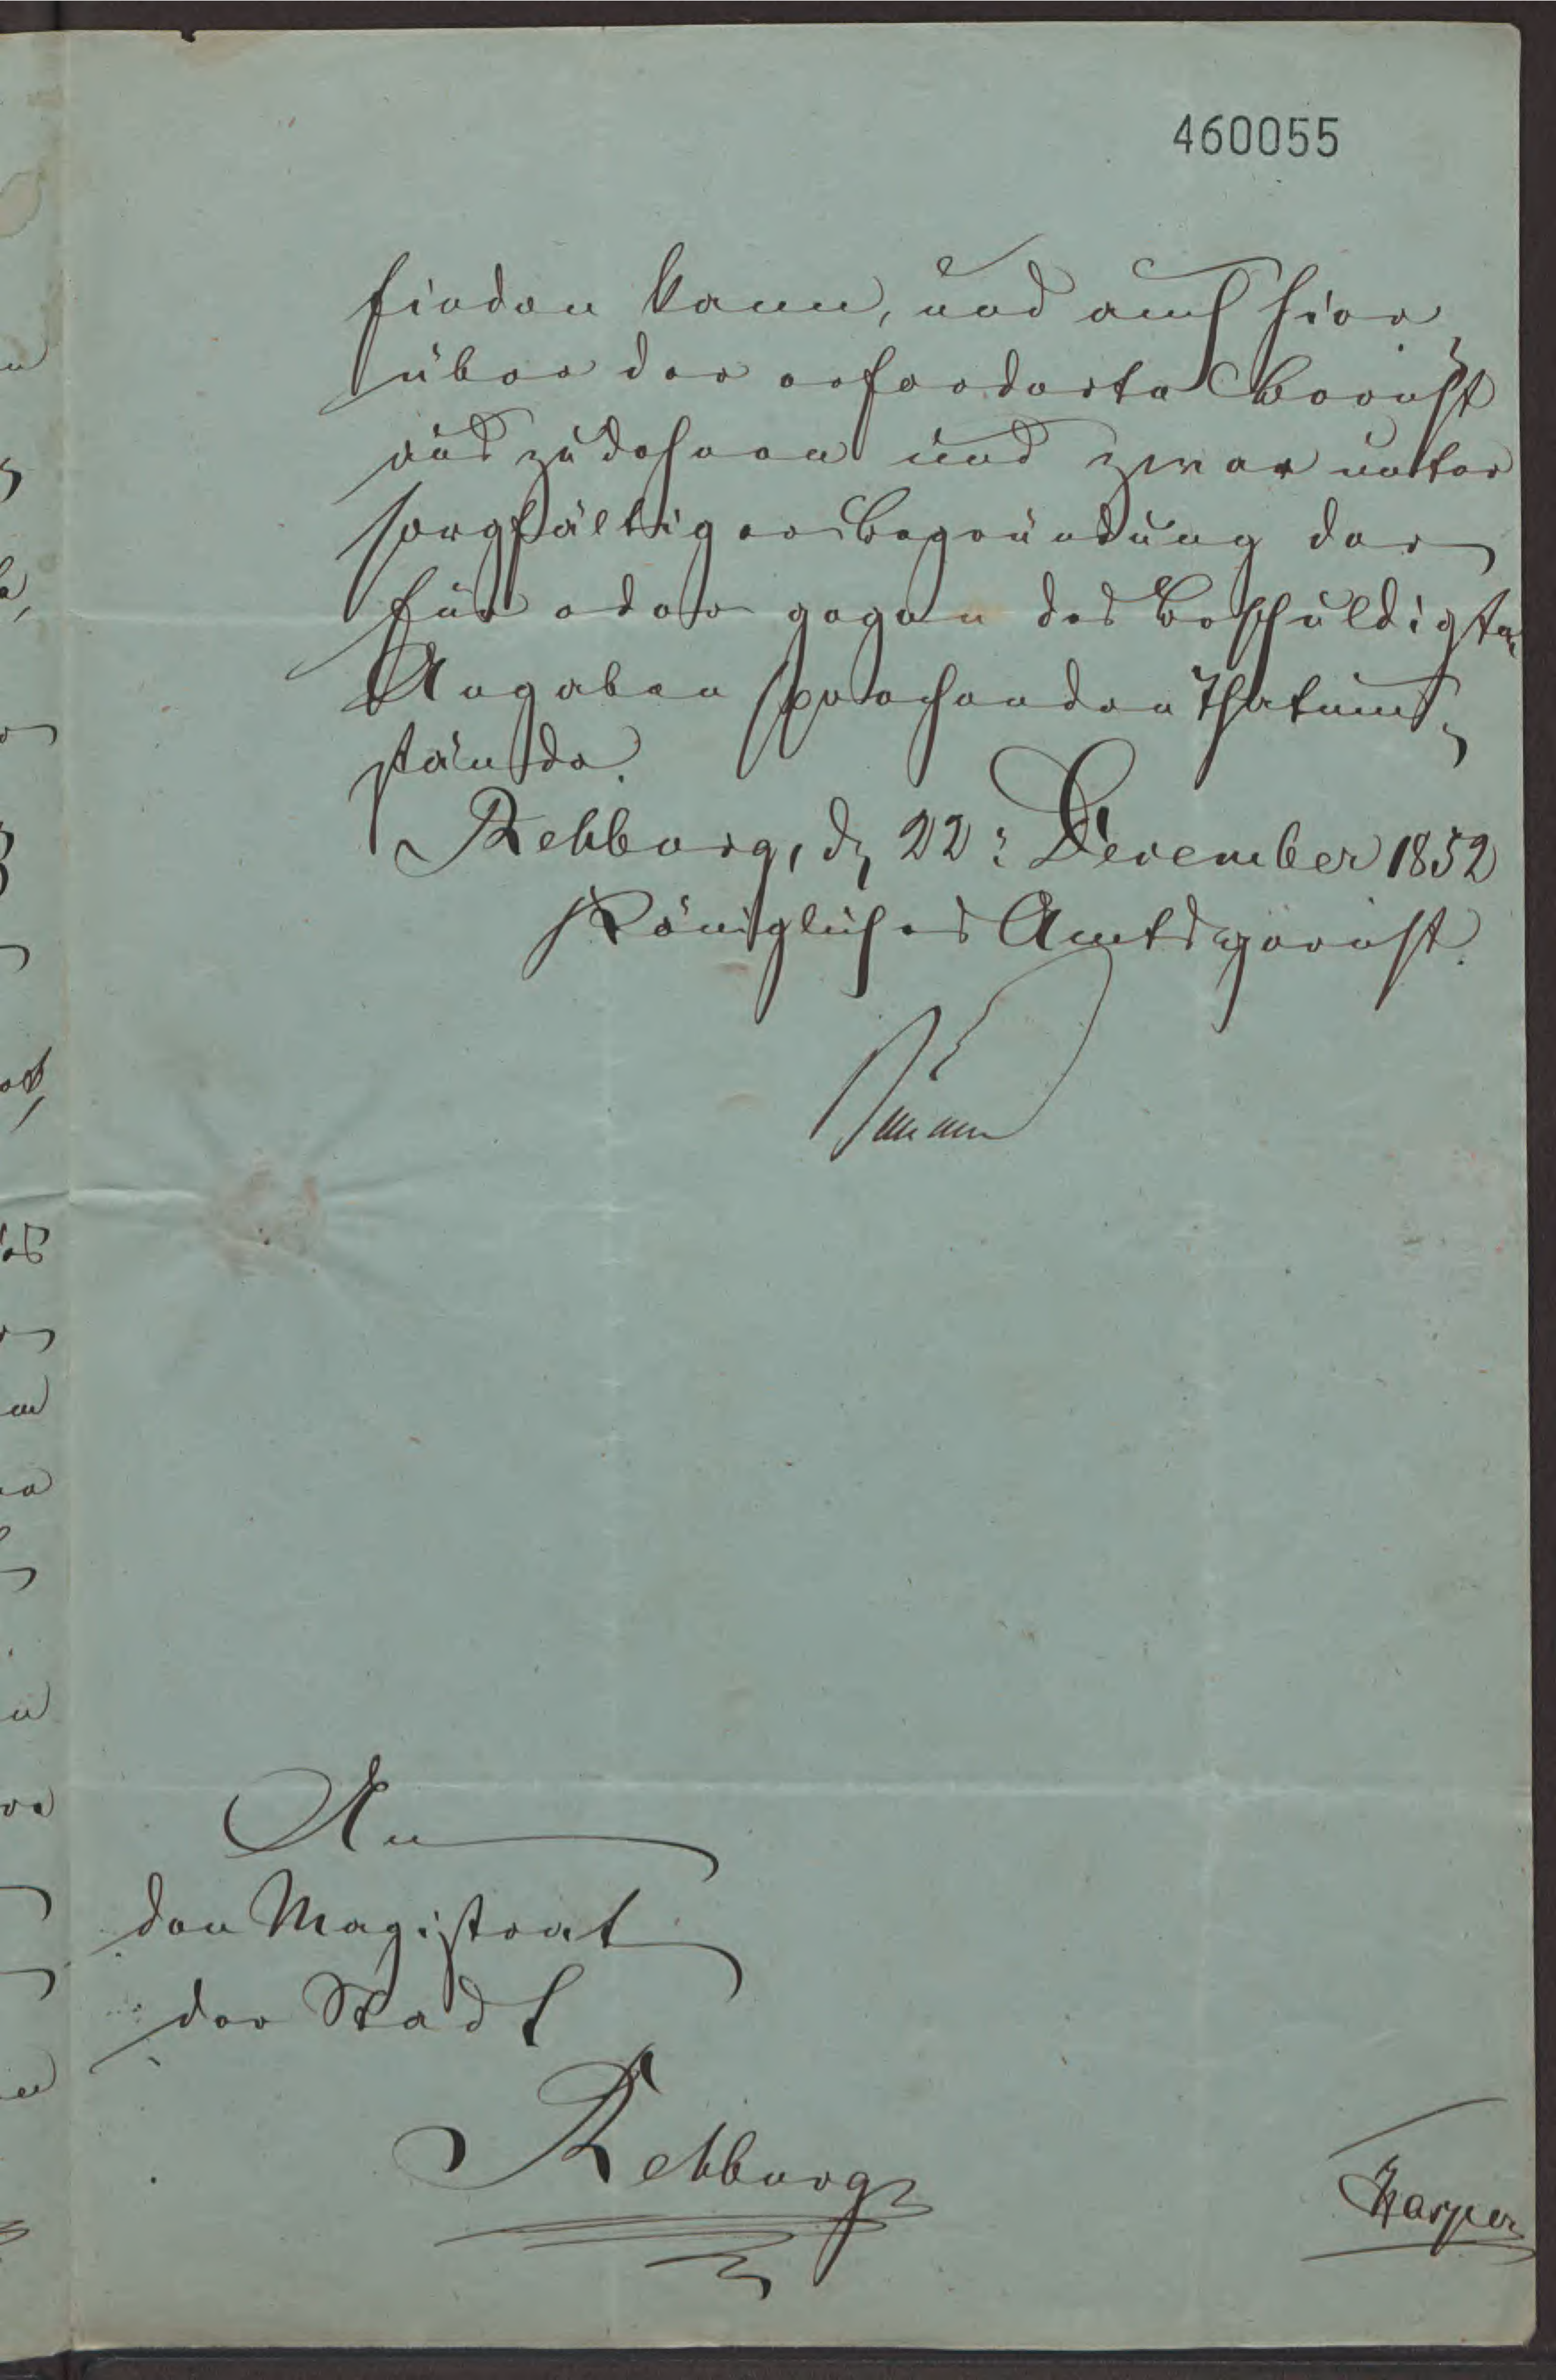 460055
finden kann, und auch hier¬
über der erforderte Bericht
auszudehnen und zwar unter
sorgfältiger Begründung der
für oder gegen des Beschuldigten
Angaben sprechenden Thatum¬
stände.
Rehburg, d. 22: December 1852
Königliches Amtsgericht.
An
den Magistrat
der Stadt
Rehburg